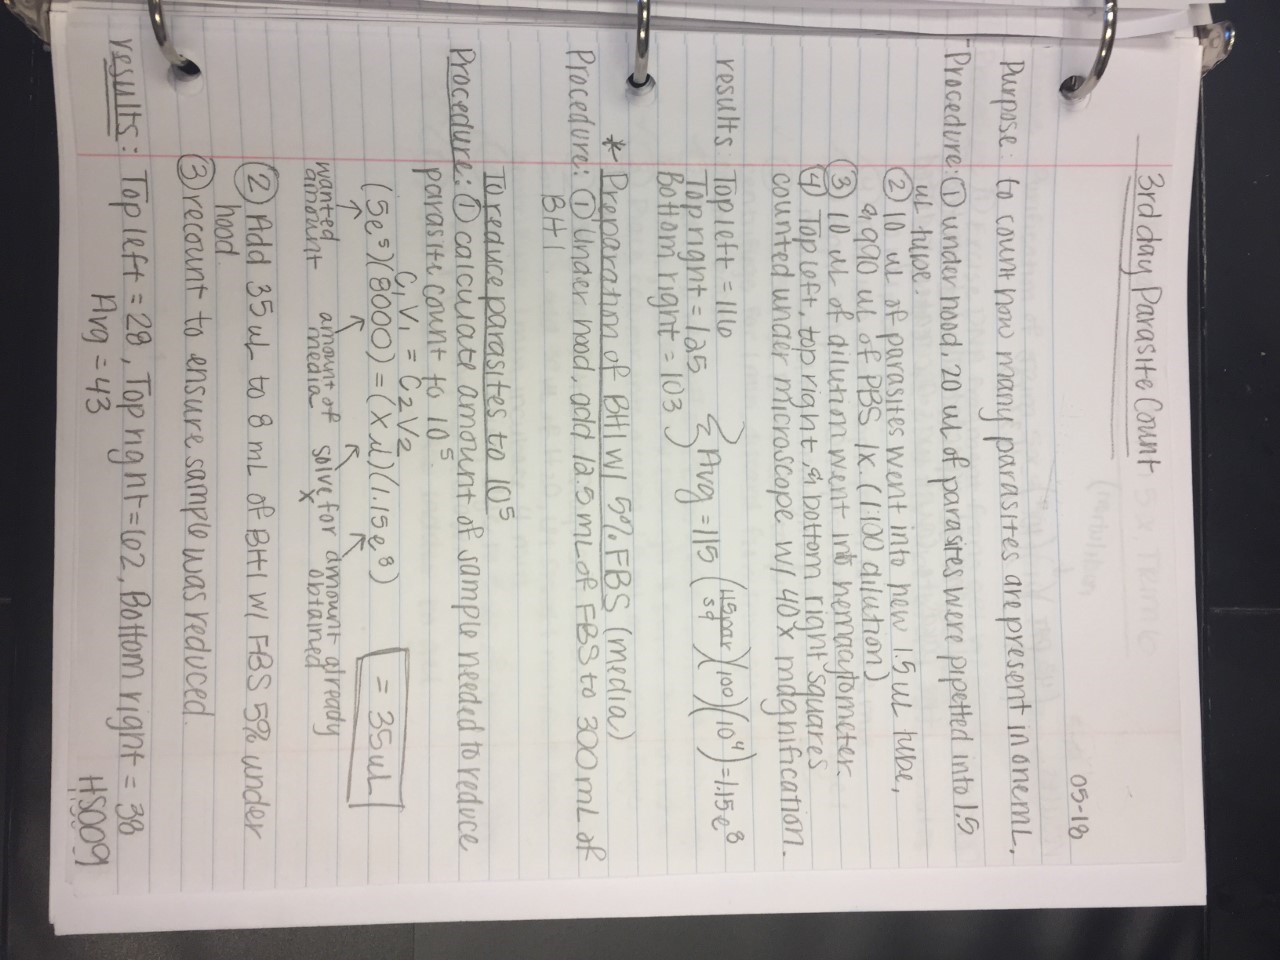 05-18
3rd day Parasite Count
Purpose: to count how many parasites are present in one mL.
-Procedure: ① under hood, 20 uL of parasites were pipetted into 1.5
uL tube.
② 10 uL of parasites went into new 1.5 uL tube,
& 990 uL of PBS 1x (1:100 dilution)
③ 10 uL of dilution went into hemacytometer.
④ Top left, top right, & bottom right squares
counted under microscope w/ 40x magnification.
results: Top left = 116
Top right = 125 } Avg = 115 (115par/sq)(100)(10⁴) = 1.15e⁸
Bottom right = 103
* Preparation of BHI w/ 5% FBS (media)
Procedure: ① Under hood, add 12.5 mL of FBS to 300 mL of
BHI
To reduce parasites to 10⁵
Procedure: ① calculate amount of sample needed to reduce
parasite count to 10⁵.
C₁V₁ = C₂V₂
(5e⁵)(8000) = (x ul)(1.15e⁸) = 35uL
wanted amount amount of media solve for x amount already obtained
② Add 35 uL to 8 mL of BHI w/ FBS 5% under
hood.
③ recount to ensure sample was reduced.
results: Top left = 28, Top right = 62, Bottom right = 38
Avg = 43
HS009